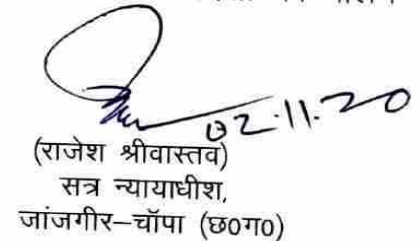 02.11.20
(राजेश श्रीवास्तव)
सत्र न्यायाधीश,
जांजगीर–चॉंपा (छ0ग0)